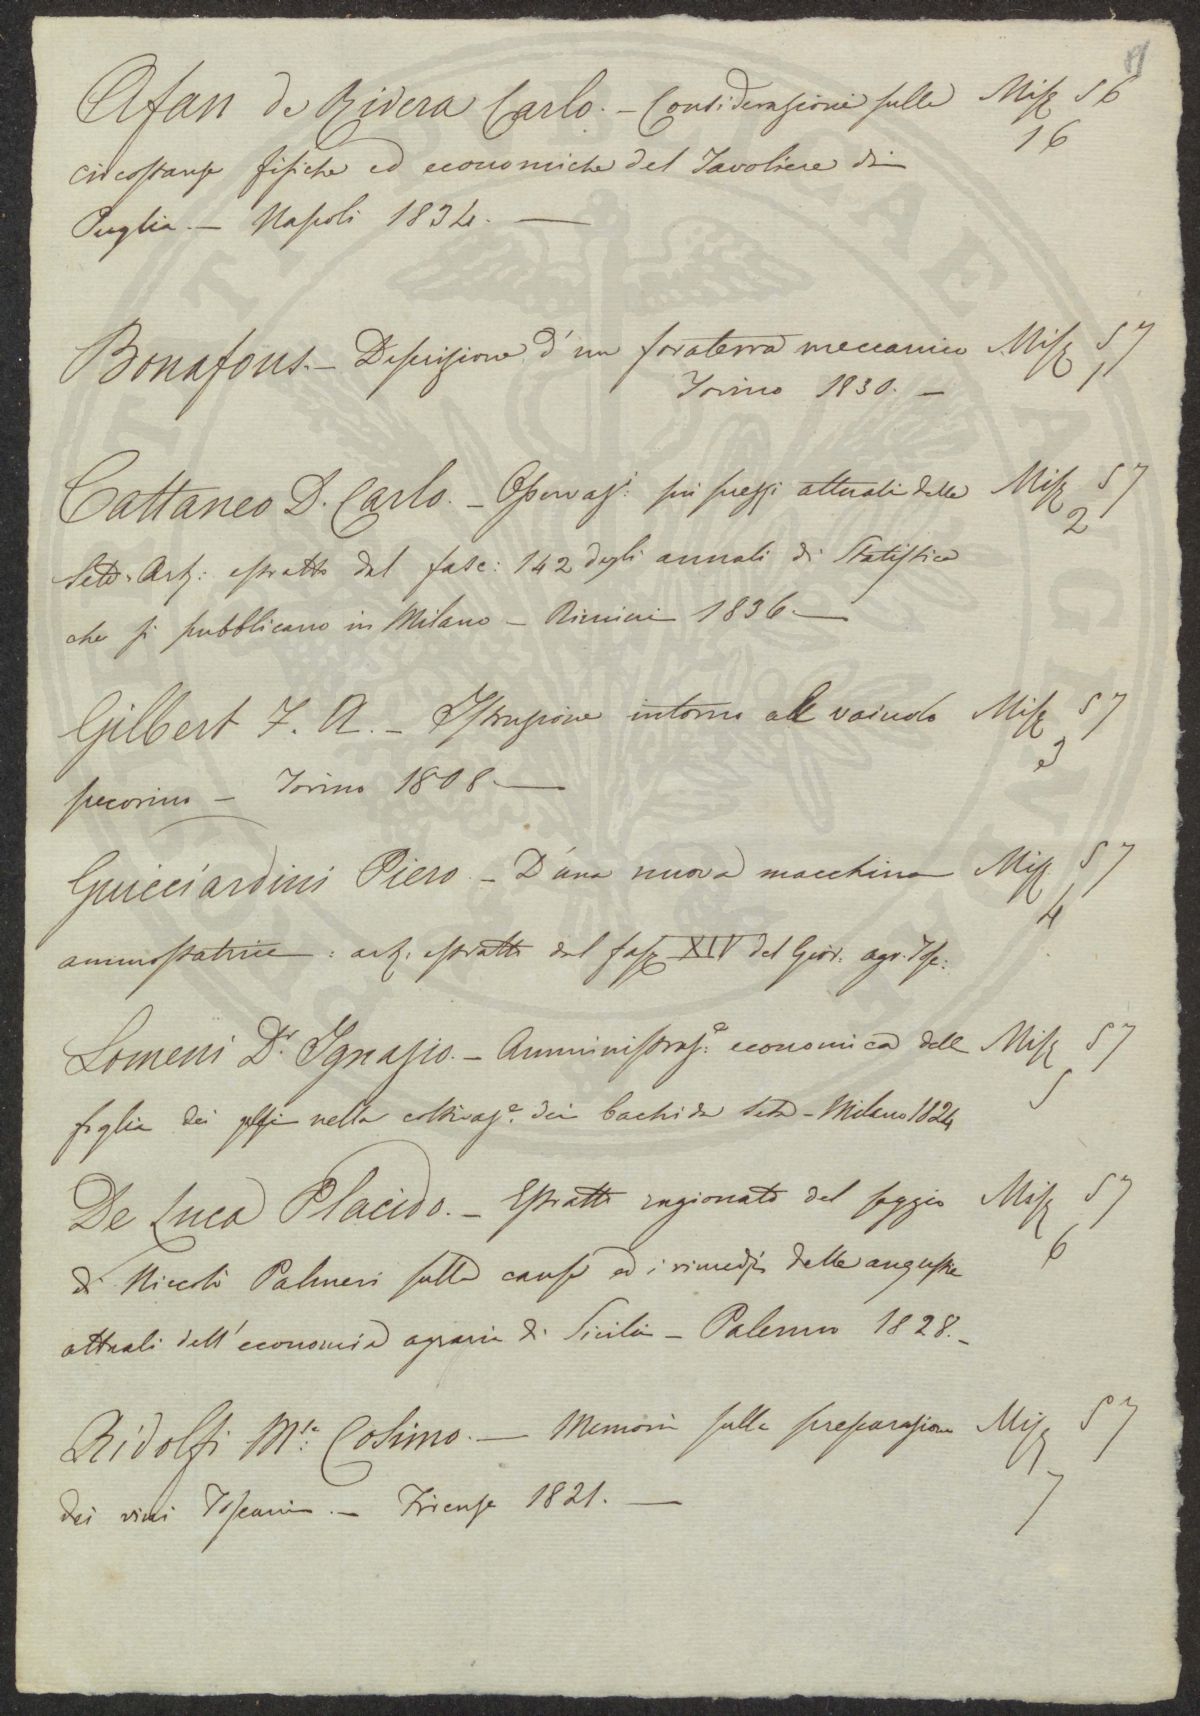 Afan de Rivera Carlo. — Considerazioni sulle Misz 56
16
circostanze fisiche ed economiche del Tavoliere di
Puglia. — Napoli 1834. —
Bonafous. — Descrizione d'un foraterra meccanico Misz 57
1
Torino 1830. —
Cattaneo D. Carlo. — Osservaz: sui prezzi attuali delle Misz 57
2
Sete. Artz: estratto dal fasc: 142 degli annali di Statistica
che si pubblicano in Milano — Rimini 1836 —
Gilbert F. A. — Istruzione intorno al vaiuolo Misz 57
3
pecorino — Torino 1808 —
Guicciardini Piero. — D'una nuova macchina Misz 57
4
ammostatrice : artz. estratto dal fasz XIV del Gior. agr. Tosc:
Lomeni Dr. Ignazio. — Amministraz:e economica della Misz 57
5
foglia dei gelsi nella coltivaz.e dei bachi da seta — Milano 1824
De Luca Placido. — Estratto ragionato del saggio Misz 57
6
di Niccolò Palmeri sulle cause ed i rimedj delle angustie
attuali dell'economia agraria di Sicilia — Palermo 1828. —
Ridolfi M.se Cosimo. — Memoria sulla preparazione Misz 57
7
dei vini Toscani. — Firenze 1821. —